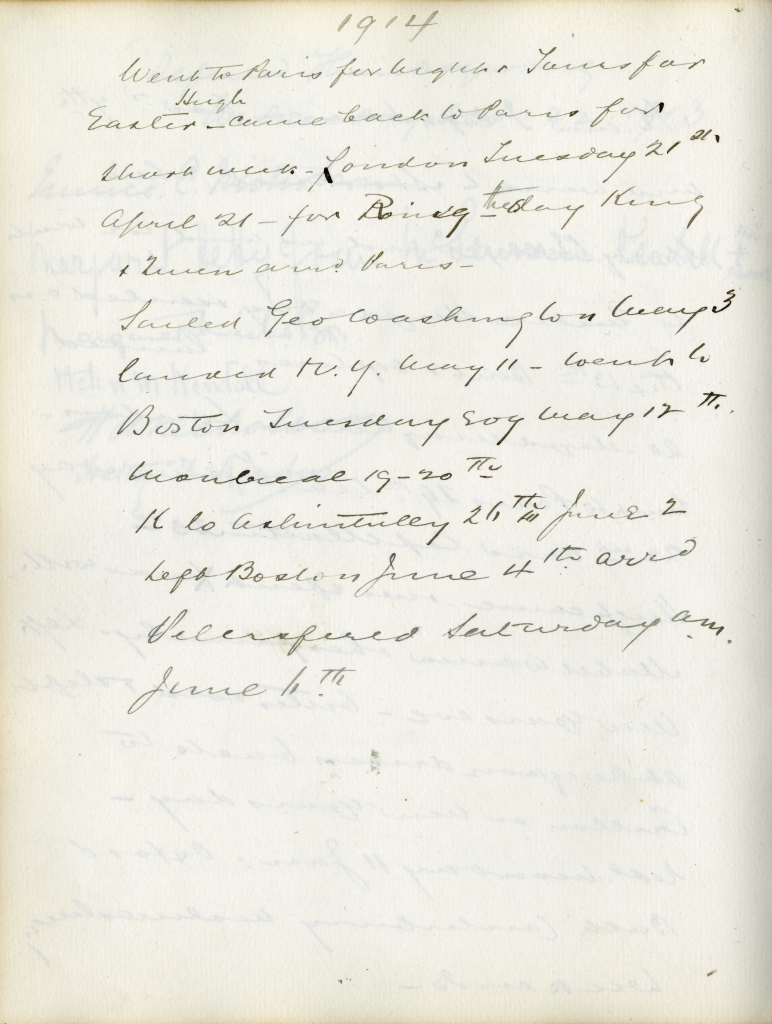 1914
Went to Paris for night & Tours for
Hugh
Easter – came back to Paris for
short week – London Tuesday 21st
April 21 – for the day King
& Queen arrd Paris –
Sailed Geo Washington May 3
landed N. Y. May 11 – went to
Boston Tuesday May 12th.
Montreal 19–20th
K to Ashintully 26th June 2
left Boston June 4th arrd
Petersfield Saturday am.
June 6th